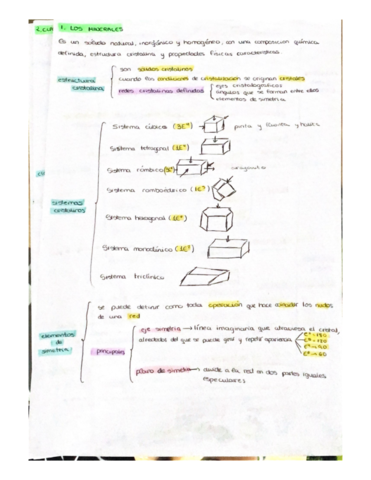 1. LOS MINERALES
Es un sólido natural, inorgánico y homogéneo, con una composición química
definida, estructura cristalina y propiedades físicas características.
estructura cristalina
son sólidos cristalinos
cuando las condiciones de cristalización se originan cristales
redes cristalinas definidas
ejes cristalográficos
ángulos que se forman entre ellos
elementos de simetría
sistemas cristalinos
Sistema cúbico
Sistema tetragonal
Sistema rómbico
Sistema romboédrico
Sistema hexagonal
Sistema monoclínico
Sistema triclínico
elementos de simetría
se puede definir como toda operación que hace coincidir los nudos
de una red
principales
eje simetría → línea imaginaria que atraviesa el cristal,
alrededor del que se puede girar y repetir apariencia
plano de simetría → divide a la red en dos partes iguales
especulares